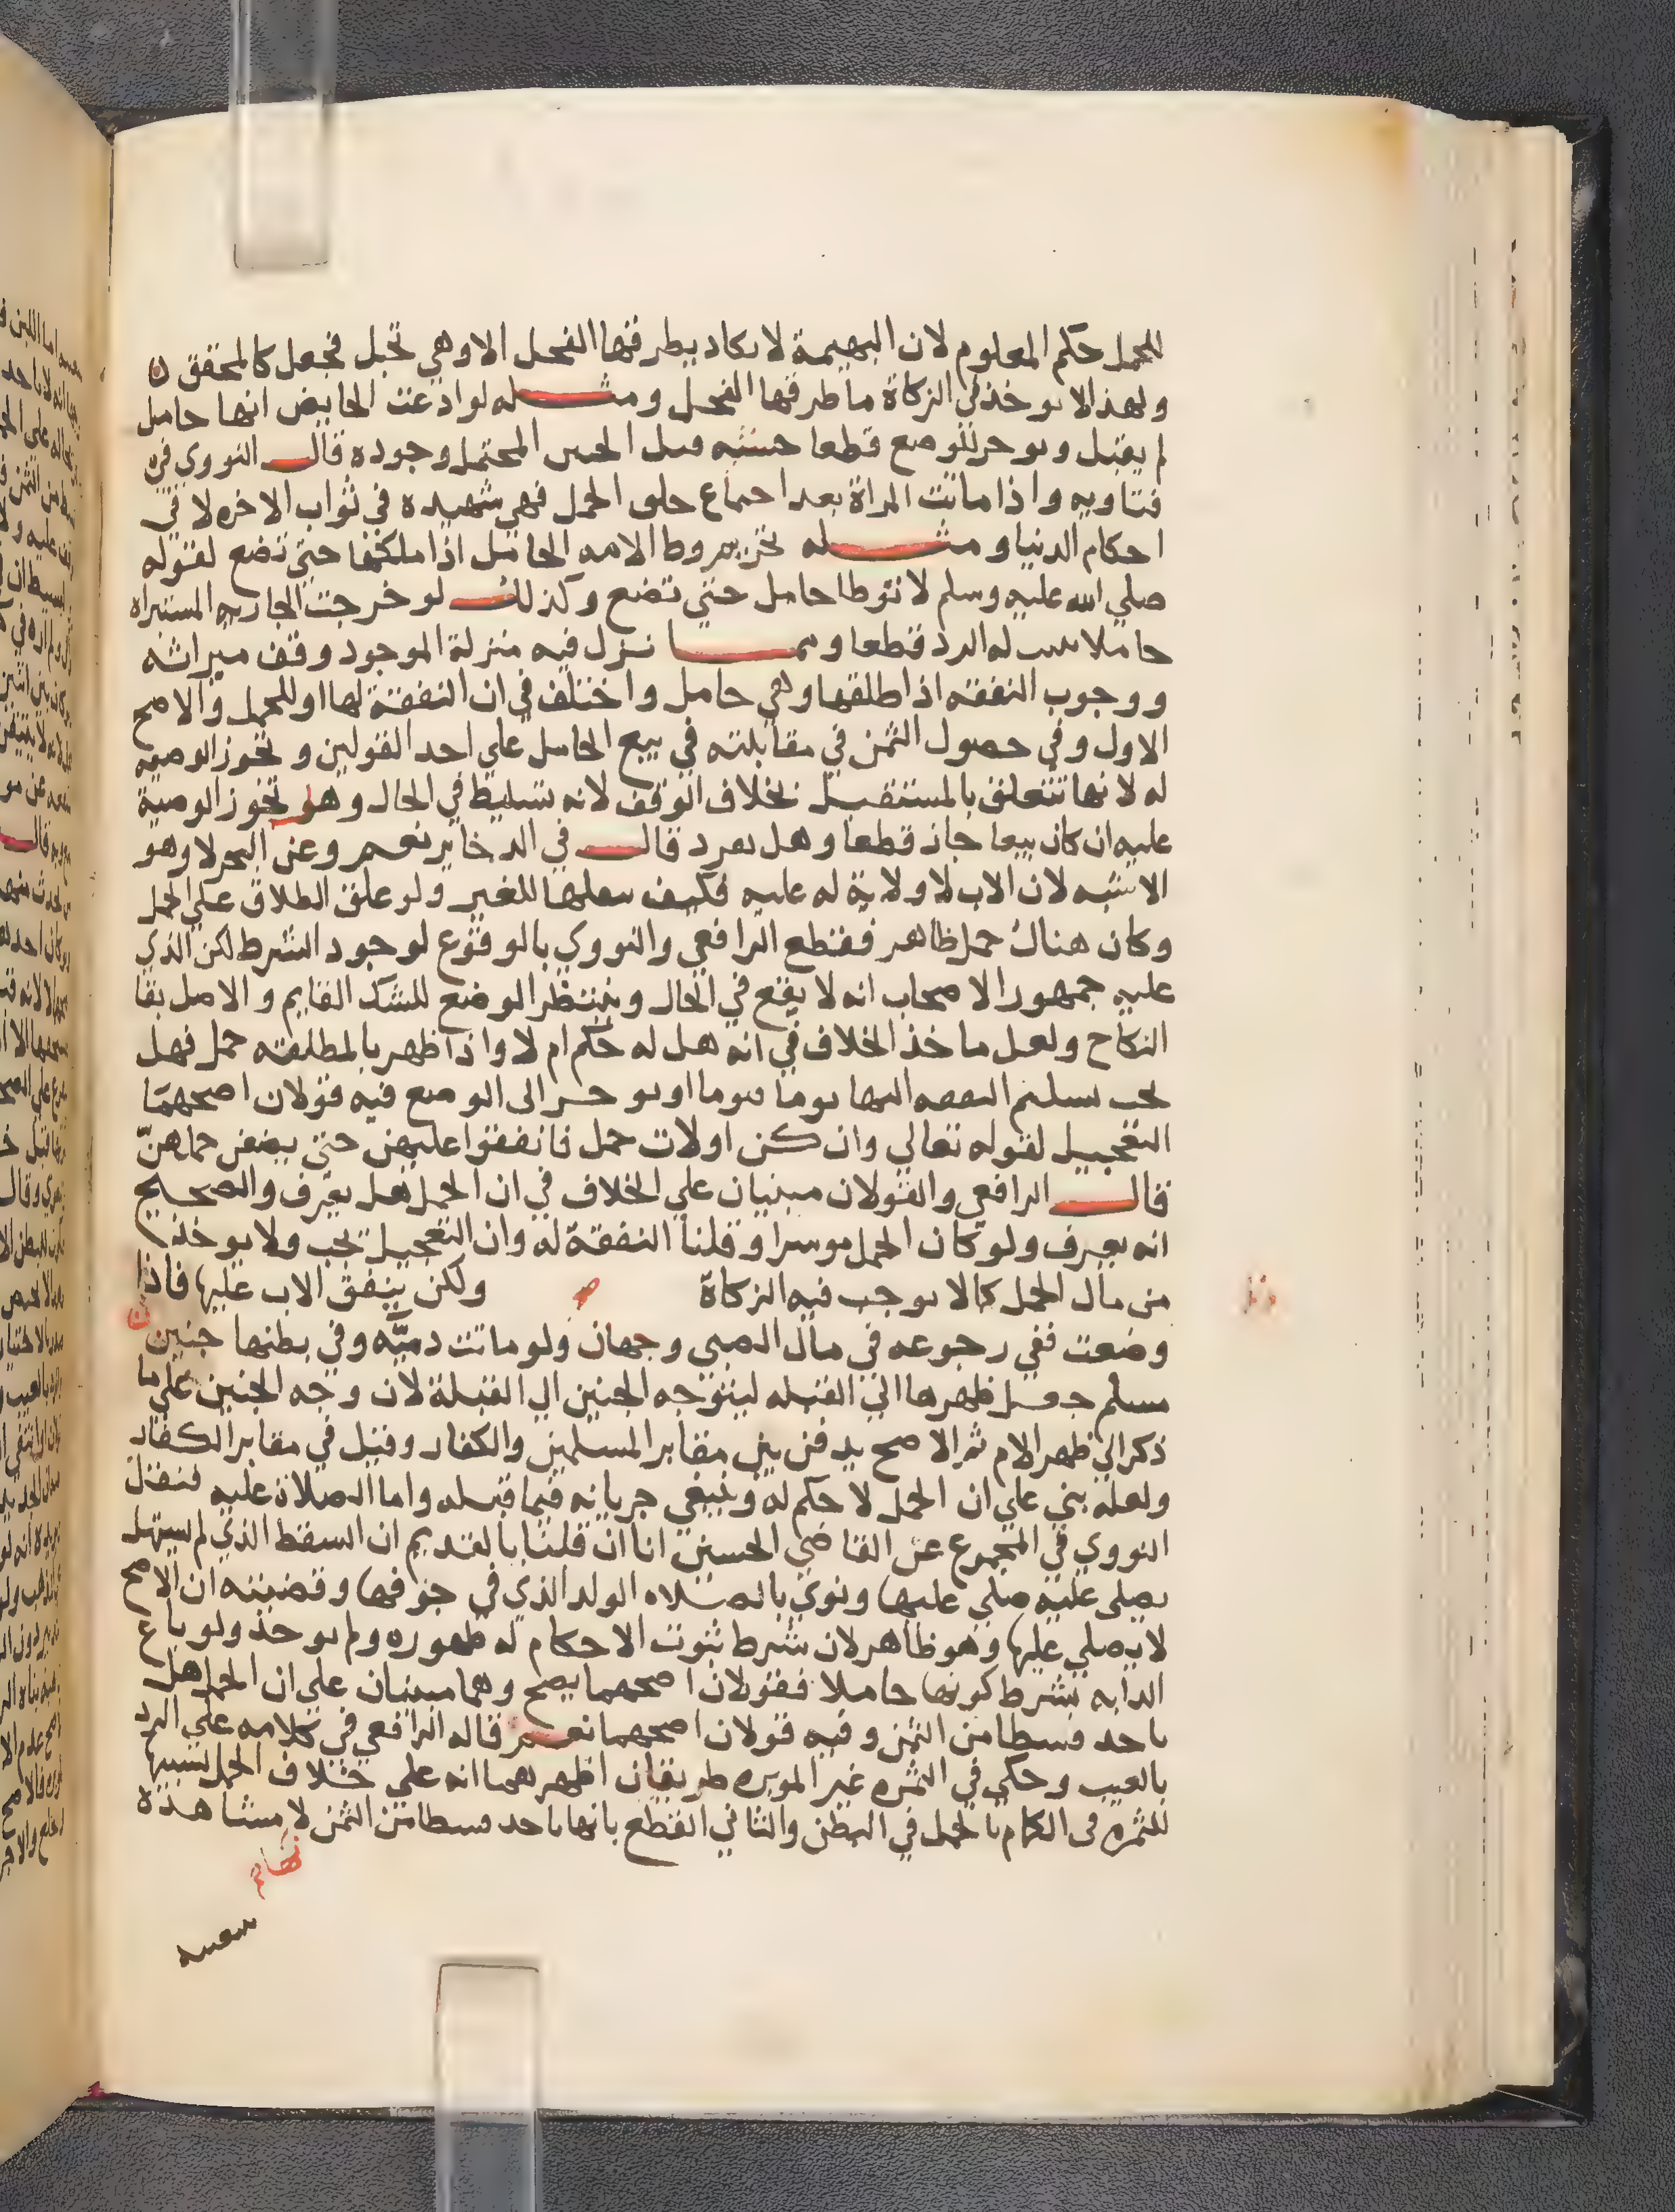 للحمل حكم المعلوم لان البهيمة لا يكاد يطرقها الفحل الا وهي تحبل فجعل كالمحقق
ولهذا لا يوخذ في الزكاة ما طرقها الفحل ومثله لو ادعت الحايض انها حامل
لم يقبل ويوخر للوضع قطعا قبل المحتمل وجوده قال النووي في
فتاويه واذا ماتت المراة بعد اجماع حلى الحمل فهي شهيده في ثواب الاخره لا في
احكام الدنيا ومثله تحريم وطا الامه الحامل اذا ملكها حتى تضع لقوله
صلي الله عليه وسلم لا توطا حامل حتي تضع وكذلك لو خرجت الجاريه المستبراه
حاملا له الرد قطعا ومما نزل فيه منزلة الموجود وقف ميراثه
ووجوب النفقه اذا طلقها وهي حامل واختلف في ان النفقة لها او للحمل والاصح
الاول وفي حصول الثمن في مقابلته في بيع الحامل علي احد القولين وتجوز الوصيه
له لانها تتعلق بالمستقبل بخلاف الوقف لانه تسليط في الحال وهل تجوز الوصية
عليه ان كان بيعا جاز قطعا وهل يفرد قال في الدخاير نعم وعن البحر لا وهو
الاشبه لان الاب لا ولاية له عليه فكيف يعلها للغير ولو علق الطلاق علي الحمل
وكان هناك حمل ظاهر فقطع الرافعي والنووي بالوقوع لوجود الشرط لكن الذي
عليه جمهور الاصحاب انه لا يقع في الحال وينتظر الوضع للشك القايم والاصل بقا
النكاح ولعل ماخذ الخلاف في انه هل له حكم ام لا واذا ظهر بالمطلقه حمل فهل
يجب تسليم النفقه اليها يوما فيوما او يوخر الى الوضع فيه قولان اصحهما
التعجيل لقوله تعالي وان كن اولات حمل فانفقوا عليهن حتي يضعن حملهن
قال الرافعي والقولان مبنيان علي الخلاف في ان الحمل هل يعرف والصحيح
انه يعرف ولو كان الحمل موسرا وقلنا النفقة له وان التعجيل يجب ولا يوخذ
من مال الحمل كما لا يوجب فيه الزكاة ولكن ينفق الاب عليها فاذا
وضعت ففي رجوعه في مال الصبي وجهان ولو ماتت دميه وفي بطنها جنين
مسلم جعل ظهرها الي القبله ليتوجه الجنين الي القبلة لان وجه الجنين علي ما
ذكر الي ظهر الام ثم الاصح يدفن بين مقابر المسلمين والكفار وقيل في مقابر الكفار
ولعله بني علي ان الحمل لا حكم له وينبغي جريانه فيما قبله واما الصلاة عليه فنقل
النووي في المجموع عن القاضي الحسين انا ان قلنا بالقديم ان السقط الذي لم يستهل
يصلى عليه صلي عليها ونوي بالصلاه الولد الذي في جوفها وقضيته ان الاصح
لا يصلي عليها وهو ظاهر لان شرط ثبوت الاحكام له ظهوره ولم يوجد ولو باع
الدابه بشرط كونها حاملا فقولان اصحهما يصح وهما مبنيان علي ان الحمل هل
ياخد قسطا من الثمن وفيه قولان اصحهما نعم قاله الرافعي في كلامه علي الرد
بالعيب وحكي في الثمره غير الموبره طريقان اظهرهما انه علي خلاف الحمل تشبيها
للثمره في الكمام بالحمل في البطن والثاني القطع بانها ياخد قسطا من الثمن لا مشاهدة